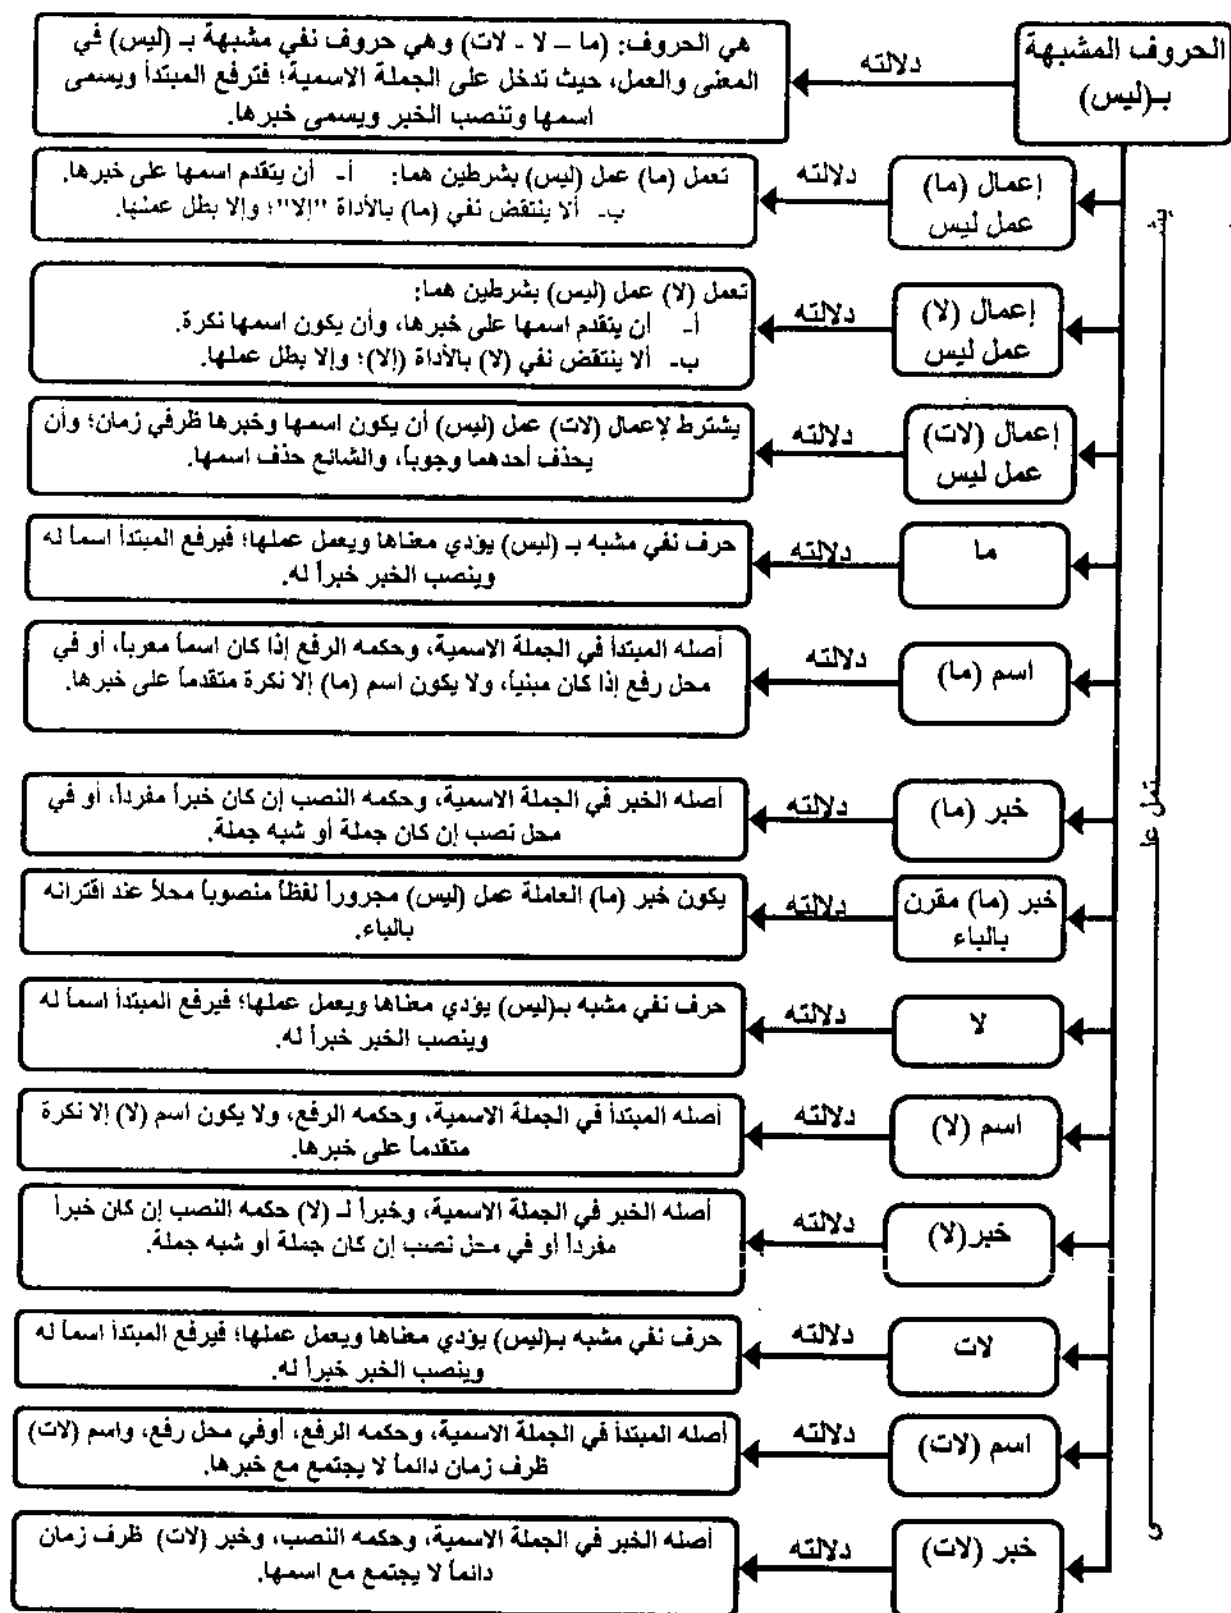 الحروف المشبهة
بـ(ليس)
دلالته
هي الحروف: (ما – لا - لات) وهي حروف نفي مشبهة بـ (ليس) في
المعنى والعمل، حيث تدخل على الجملة الاسمية؛ فترفع المبتدأ ويسمى
اسمها وتنصب الخبر ويسمى خبرها.
يشتمل على
إعمال (ما)
عمل ليس
دلالته
تعمل (ما) عمل (ليس) بشرطين هما: أ- أن يتقدم اسمها على خبرها.
ب- ألا ينتقض نفي (ما) بالأداة "إلا"؛ وإلا بطل عملها.
إعمال (لا)
عمل ليس
دلالته
تعمل (لا) عمل (ليس) بشرطين هما:
أ- أن يتقدم اسمها على خبرها، وأن يكون اسمها نكرة.
ب- ألا ينتقض نفي (لا) بالأداة (إلا)؛ وإلا بطل عملها.
إعمال (لات)
عمل ليس
دلالته
يشترط لإعمال (لات) عمل (ليس) أن يكون اسمها وخبرها ظرفي زمان؛ وأن
يحذف أحدهما وجوباً، والشائع حذف اسمها.
ما
دلالته
حرف نفي مشبه بـ (ليس) يؤدي معناها ويعمل عملها؛ فيرفع المبتدأ اسماً له
وينصب الخبر خبراً له.
اسم (ما)
دلالته
أصله المبتدأ في الجملة الاسمية، وحكمه الرفع إذا كان اسماً معرباً، أو في
محل رفع إذا كان مبنياً، ولا يكون اسم (ما) إلا نكرة متقدماً على خبرها.
خبر (ما)
دلالته
أصله الخبر في الجملة الاسمية، وحكمه النصب إن كان خبراً مفرداً، أو في
محل نصب إن كان جملة أو شبه جملة.
خبر (ما) مقرن
بالباء
دلالته
يكون خبر (ما) العاملة عمل (ليس) مجروراً لفظاً منصوباً محلاً عند اقترانه
بالباء.
لا
دلالته
حرف نفي مشبه بـ(ليس) يؤدي معناها ويعمل عملها؛ فيرفع المبتدأ اسماً له
وينصب الخبر خبراً له.
اسم (لا)
دلالته
أصله المبتدأ في الجملة الاسمية، وحكمه الرفع، ولا يكون اسم (لا) إلا نكرة
متقدماً على خبرها.
خبر(لا)
دلالته
أصله الخبر في الجملة الاسمية، وخبراً لـ (لا) حكمه النصب إن كان خبراً
مفرداً أو في محل نصب إن كان جملة أو شبه جملة.
لات
دلالته
حرف نفي مشبه بـ(ليس) يؤدي معناها ويعمل عملها؛ فيرفع المبتدأ اسماً له
وينصب الخبر خبراً له.
اسم (لات)
دلالته
أصله المبتدأ في الجملة الاسمية، وحكمه الرفع، أوفي محل رفع، واسم (لات)
ظرف زمان دائماً لا يجتمع مع خبرها.
خبر (لات)
دلالته
أصله الخبر في الجملة الاسمية، وحكمه النصب، وخبر (لات) ظرف زمان
دائماً لا يجتمع مع اسمها.